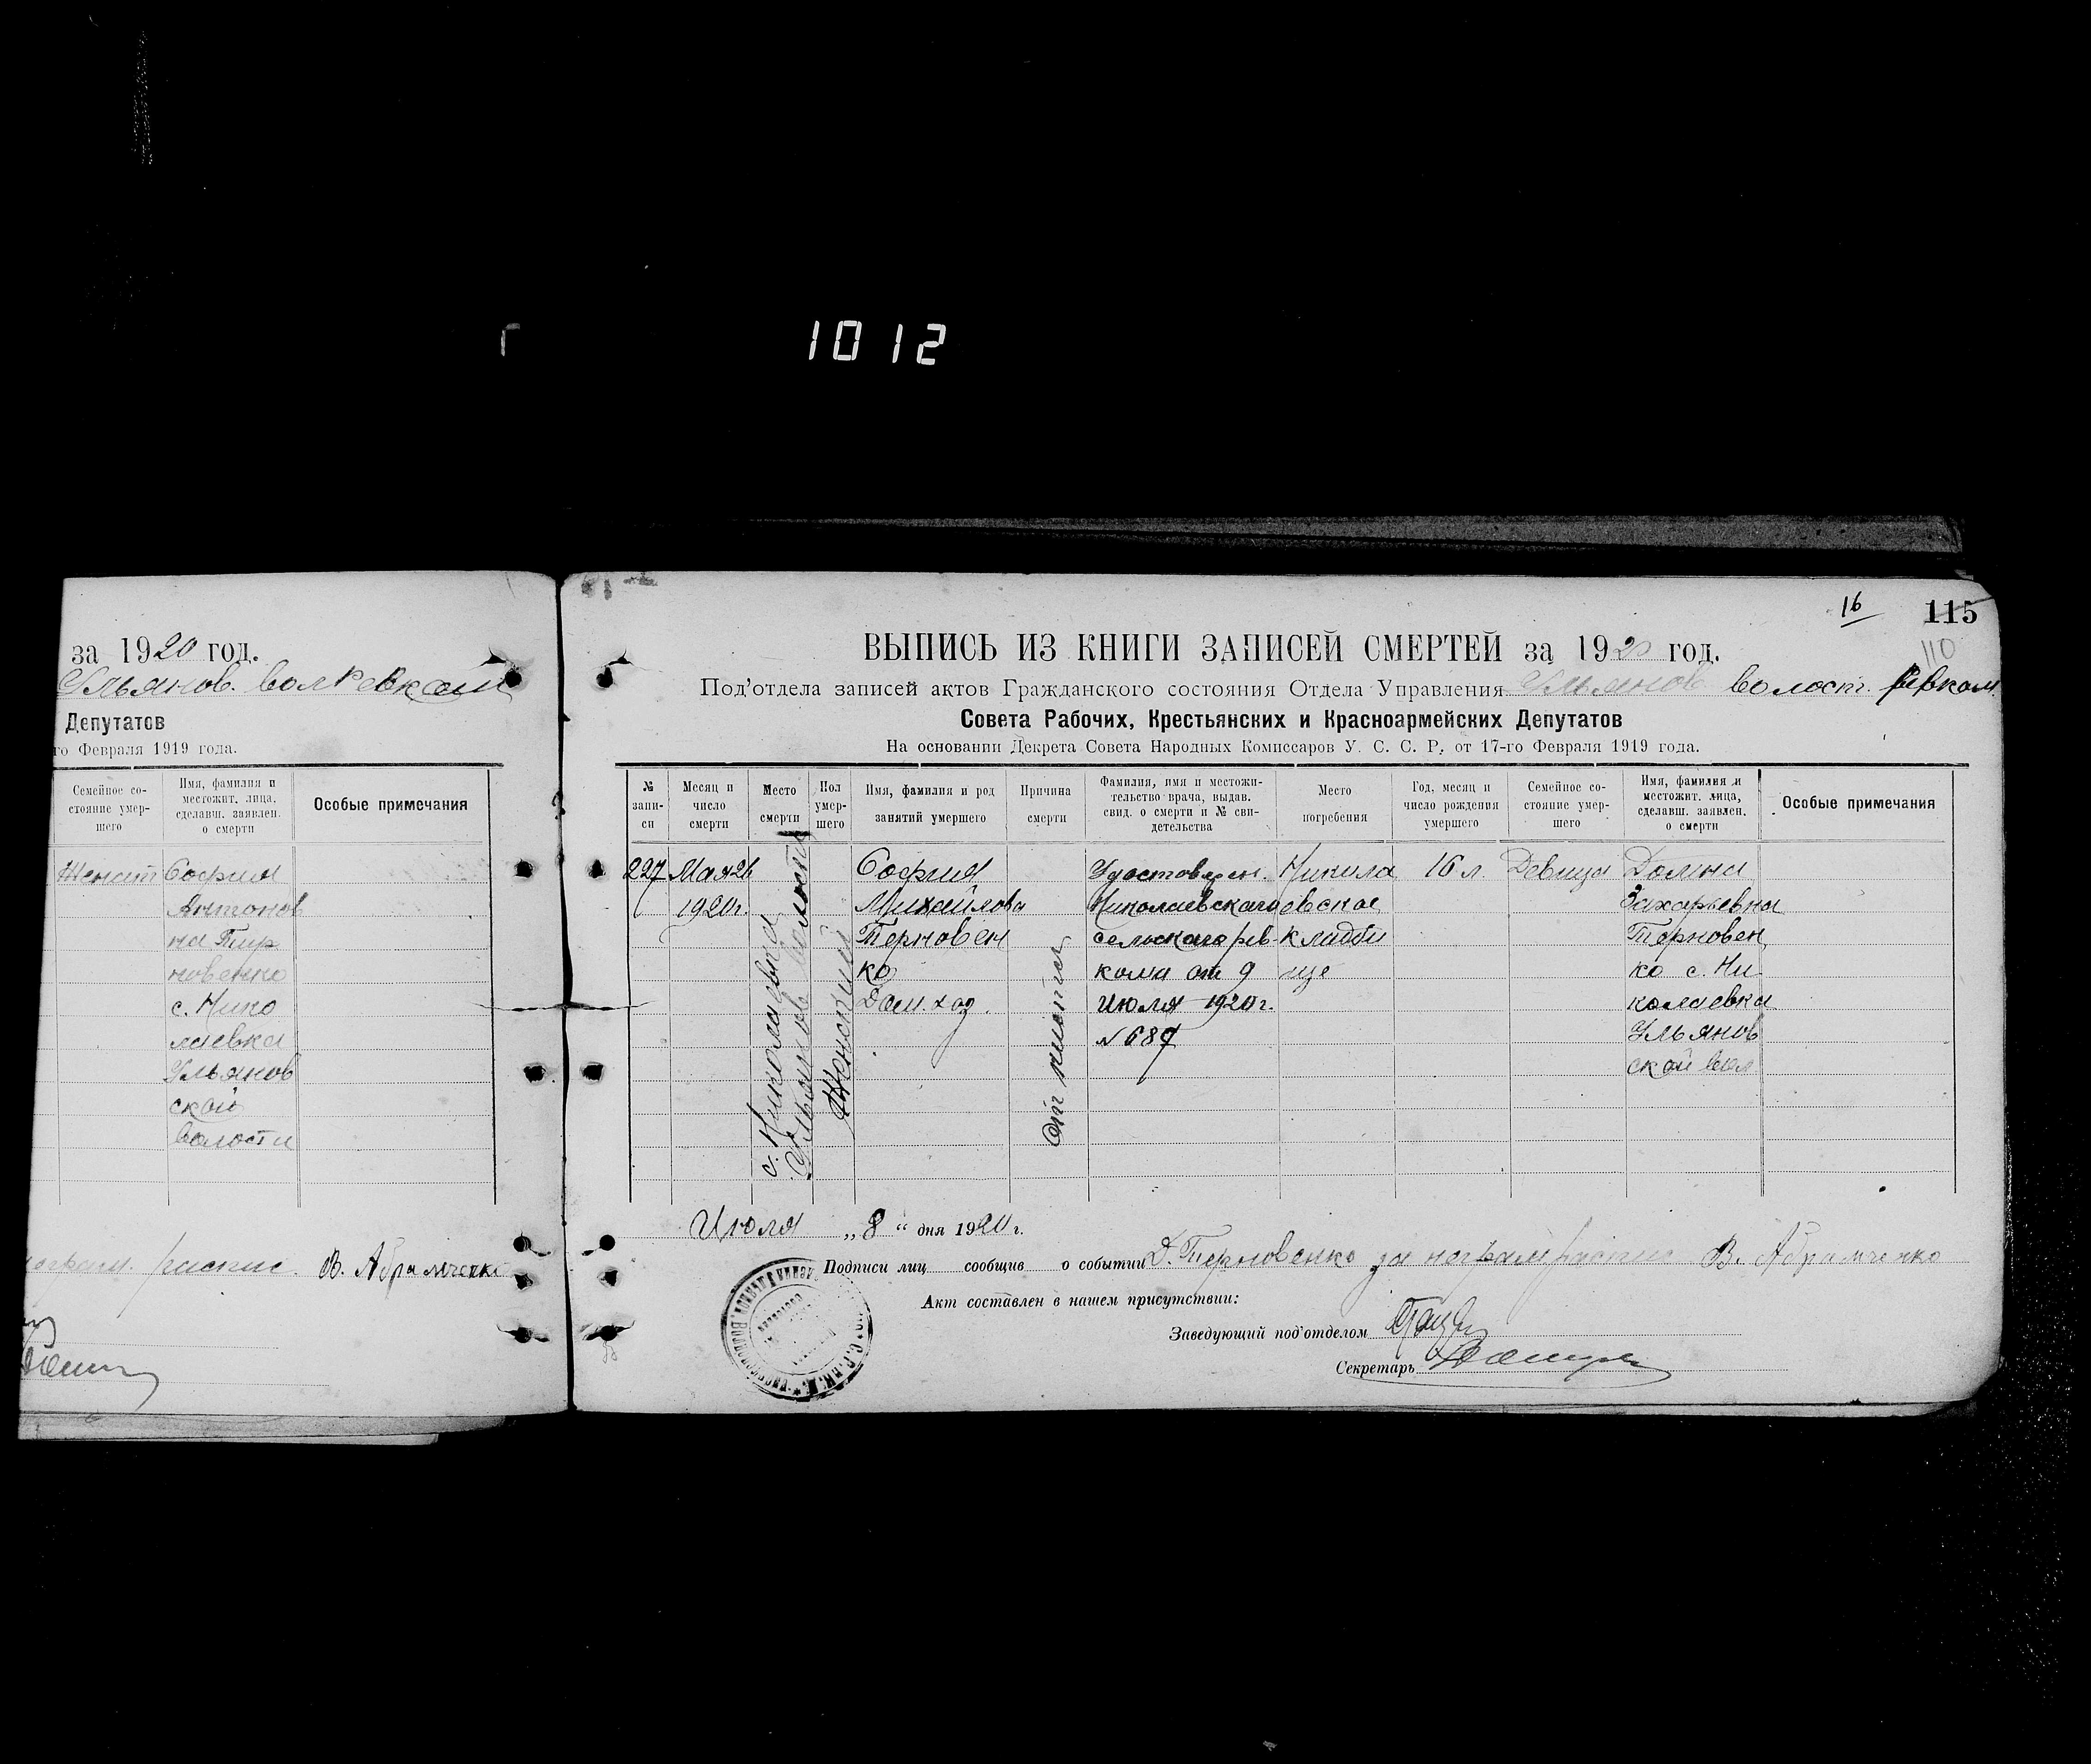 1012
за 1920 год.
Ульянов. волревком
Депутатов
го Февраля 1919 года.
Семейное со-
стояние умер-
шего
Имя, фамилия и
местожит. лица,
сделавш. заявлен.
о смерти
Особые примечания
Женат
София
Антонов
на Тер
новенко
с. Нико
лаевка
Ульянов
ской
волости
В. Абрамченко
16
115
110
ВЫПИСЬ ИЗ КНИГИ ЗАПИСЕЙ СМЕРТЕЙ за 1920 год.
Под'отдела записей актов Гражданского состояния Отдела Управления Ульянов волост. Ревком
Совета Рабочих, Крестьянских и Красноармейских Депутатов
На основании Декрета Совета Народных Комиссаров У. С. С. Р. от 17-го Февраля 1919 года.
№
запи-
си
Месяц и
число
смерти
Место
смерти
Пол
умер-
шего
Имя, фамилия и род
занятий умершего
Причина
смерти
Фамилия, имя и местожи-
тельство врача, выдав.
свид. о смерти и № сви-
детельства
Место
погребения
Год, месяц и
число рождения
умершего
Семейное со-
стояние умер-
шего
Имя, фамилия и
местожит. лица,
сделавш. заявлен.
о смерти
Особые примечания
227
Мая 26
1920г.
с. Николаевка
Ульянов волости
Женский
София
Михайлова
Терновен
ко
Дом. хоз.
От тифа
Удостоверен.
Николаевскаго
сельскаго рев
кома от 9
июля 1920г.
№ 687
Никола
евское
кладби
ще
16 л.
Девица
Домна
Захарьевна
Терновен
ко с. Ни
колаевка
Ульянов
ской вол
Июля „8“ дня 1920 г.
Подписи лиц сообщив о событии Д. Терновенко за неграм распис В. Абрамченко
Акт составлен в нашем присутствии:
Заведующий под'отделом
Секретарь